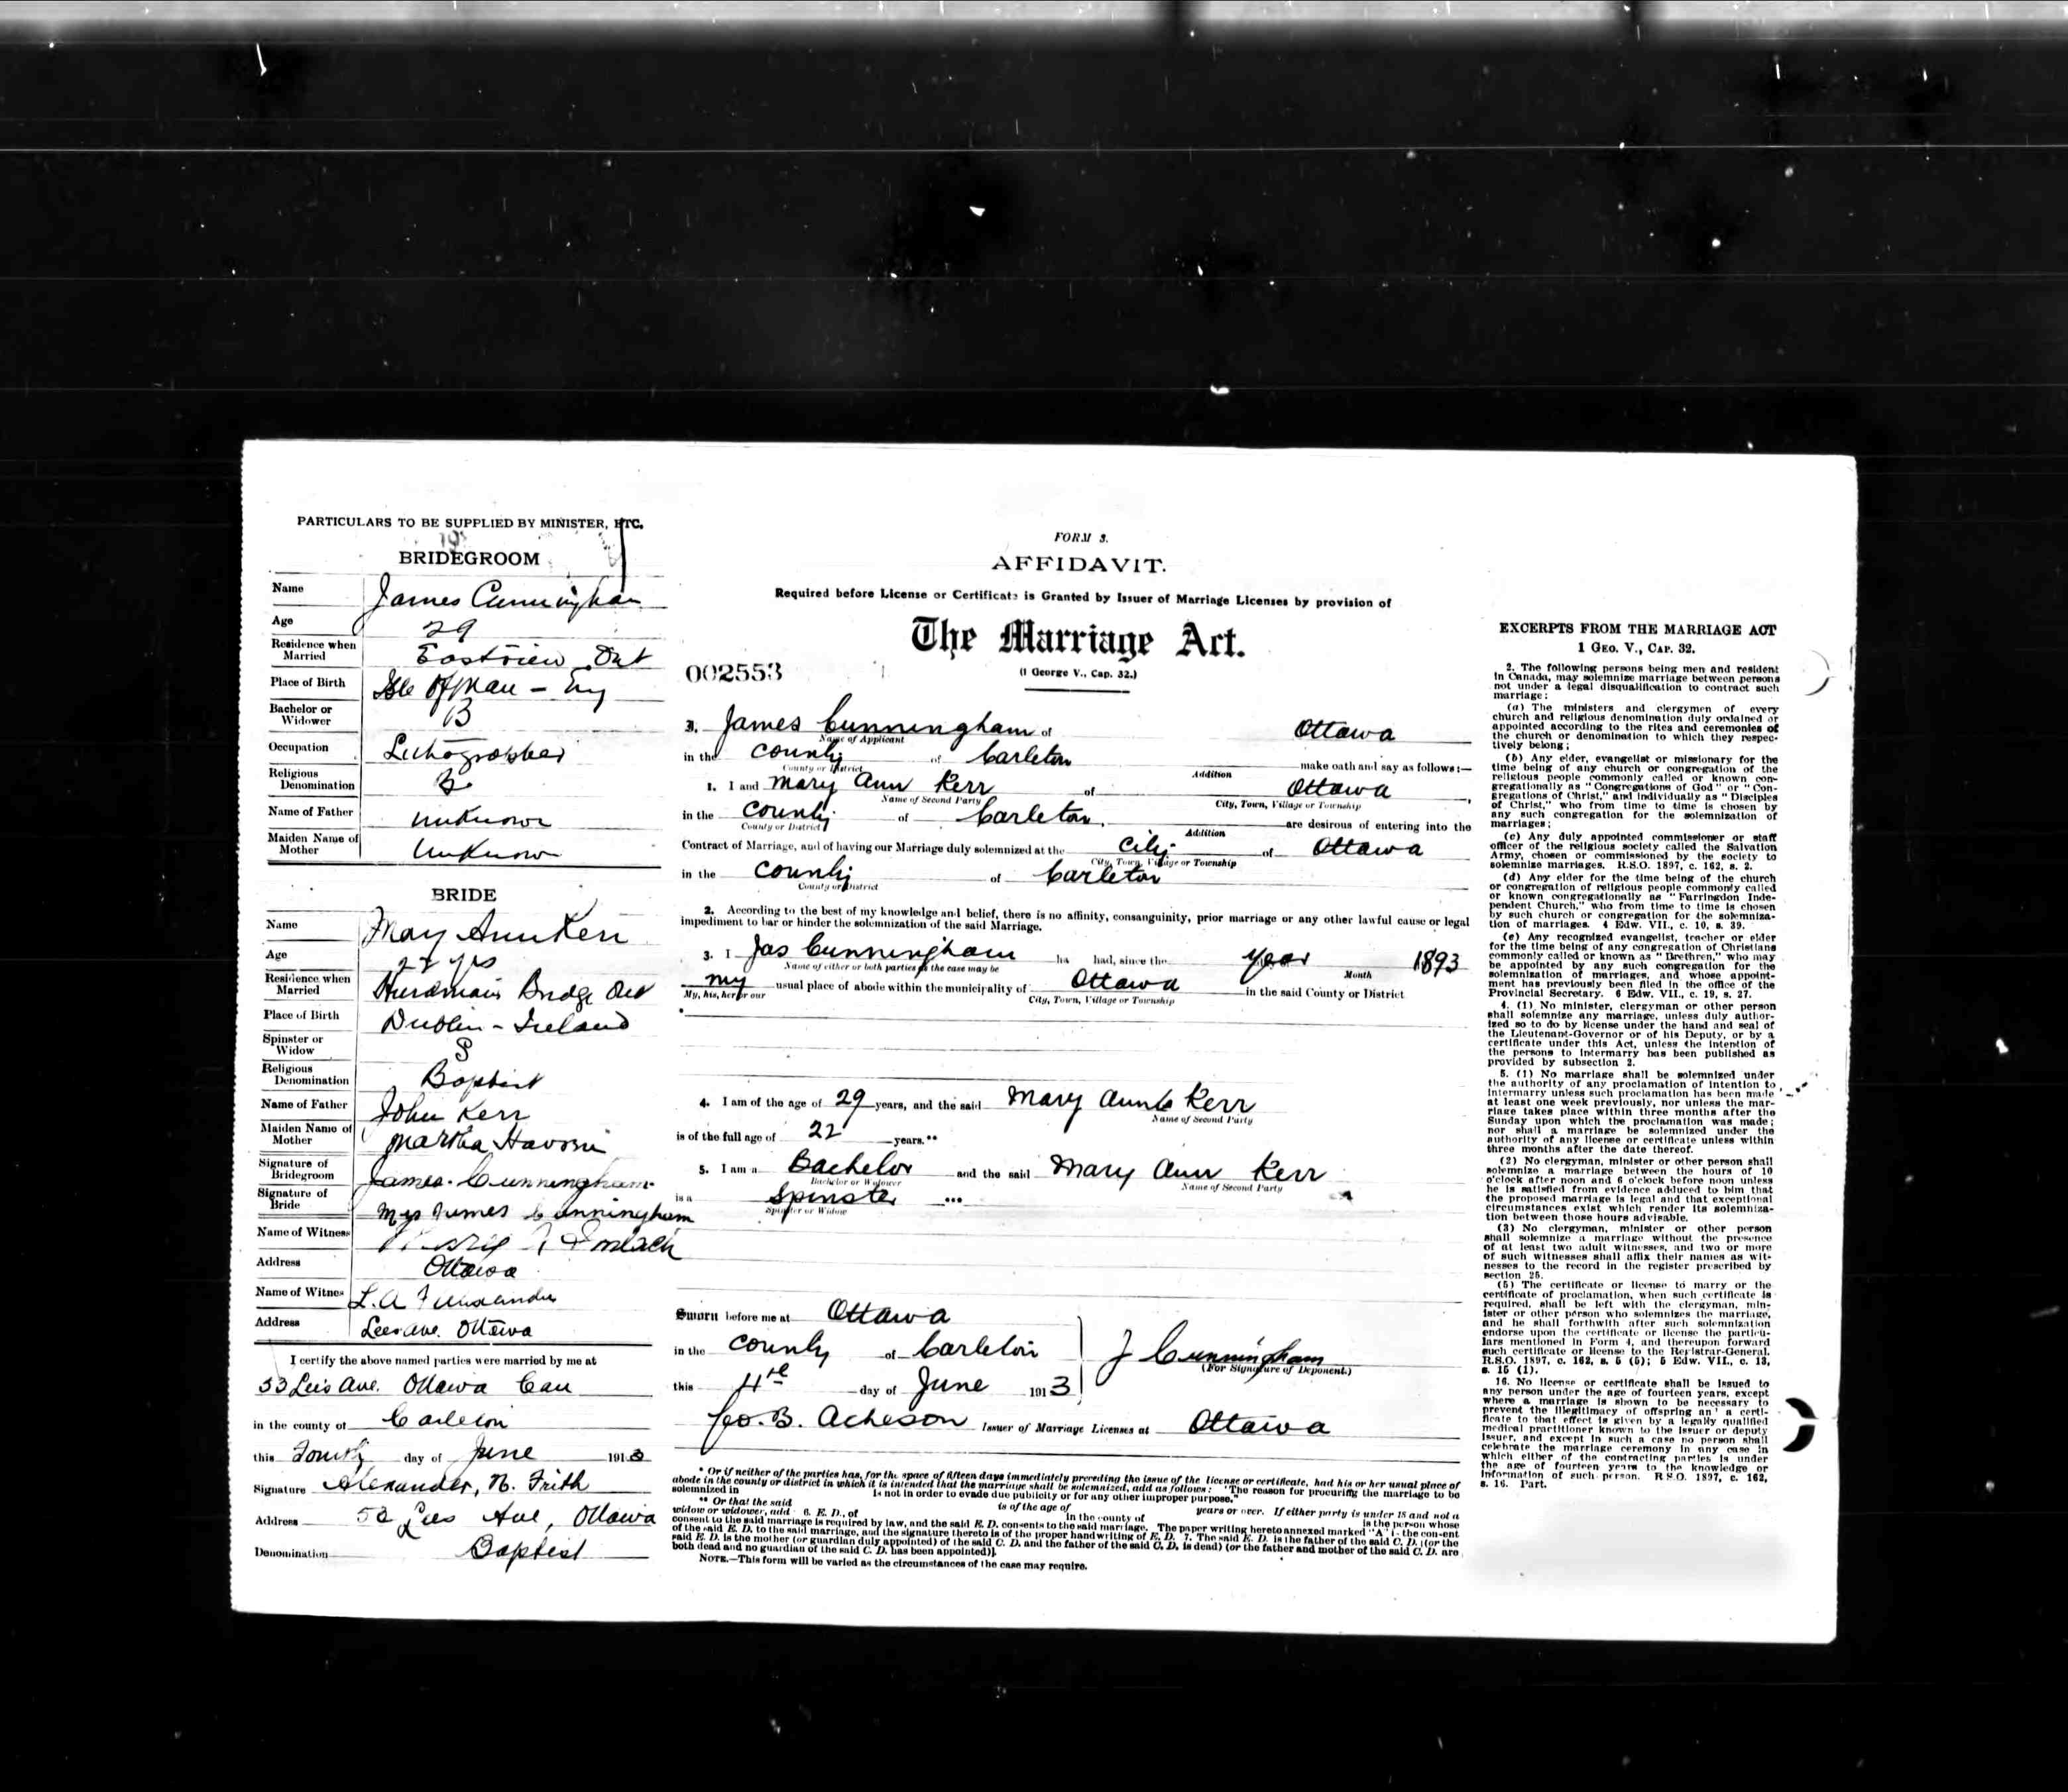 PARTICULARS TO BE SUPPLIED BY MINISTER, ETC.
BRIDEGROOM
Name James Cunningham
Age 29
Residence when Married Eastview Ont
Place of Birth Isle of Man - Eng
Bachelor or Widower B
Occupation Lithographer
Religious Denomination B
Name of Father unknown
Maiden Name of Mother Unknown
BRIDE
Name Mary Ann Kerr
Age 22 yrs
Residence when Married Hurdmans Bridge Ont
Place of Birth Dublin - Ireland
Spinster or Widow S
Religious Denomination Baptist
Name of Father John Kerr
Maiden Name of Mother Martha
Signature of Bridegroom James Cunningham
Signature of Bride Mrs James Cunningham
Name of Witness
Address Ottawa
Name of Witness L. A.
Address Lees Ave. Ottawa
I certify the above named parties were married by me at
53 Lees Ave. Ottawa Can
in the county of Carleton
this Fourth day of June 1913
Signature Alexander, N. Frith
Address Lees Ave, Ottawa
Denomination Baptist
FORM 3.
AFFIDAVIT.
Required before License or Certificate is Granted by Issuer of Marriage Licenses by provision of
The Marriage Act.
002553
(1 George V., Cap. 32.)
I, James Cunningham of Ottawa
Name of Applicant
in the county of Carleton make oath and say as follows:—
County or District Addition
1. I and Mary Ann Kerr of Ottawa,
Name of Second Party City, Town, Village or Township
in the county of Carleton, are desirous of entering into the
County or District Addition
Contract of Marriage, and of having our Marriage duly solemnized at the City of Ottawa
City, Town, Village or Township
in the county of Carleton
County or District
2. According to the best of my knowledge and belief, there is no affinity, consanguinity, prior marriage or any other lawful cause or legal
impediment to bar or hinder the solemnization of the said Marriage.
3. I Jas Cunningham ha had, since the year 1893
Name of either or both parties as the case may be Month
my usual place of abode within the municipality of Ottawa in the said County or District
My, his, her or our City, Town, Village or Township
4. I am of the age of 29 years, and the said Mary Ann Kerr
Name of Second Party
is of the full age of 22 years.**
5. I am a Bachelor and the said Mary Ann Kerr
Bachelor or Widower Name of Second Party
is a Spinster ***
Spinster or Widow
Sworn before me at Ottawa
in the county of Carleton
J Cunningham
(For Signature of Deponent.)
this 4th day of June 1913
Geo. B. Acheson Issuer of Marriage Licenses at Ottawa
* Or if neither of the parties has, for the space of fifteen days immediately preceding the issue of the license or certificate, had his or her usual place of
abode in the county or district in which it is intended that the marriage shall be solemnized, add as follows: "The reason for procuring the marriage to be
solemnized in is not in order to evade due publicity or for any other improper purpose."
** Or that the said is of the age of years or over. If either party is under 18 and not a
widow or widower, add 6. E. D., of in the county of is the person whose
consent to the said marriage is required by law, and the said E. D. consents to the said marriage. The paper writing hereto annexed marked "A" is the consent
of the said E. D. to the said marriage, and the signature thereto is of the proper handwriting of E. D. 7. The said E. D. is the father of the said C. D. (or the
said E. D. is the mother (or guardian duly appointed) of the said C. D. and the father of the said C. D. is dead) (or the father and mother of the said C. D. are
both dead and no guardian of the said C. D. has been appointed)].
NOTE.—This form will be varied as the circumstances of the case may require.
EXCERPTS FROM THE MARRIAGE ACT
1 GEO. V., CAP. 32.
2. The following persons being men and resident
in Canada, may solemnize marriage between persons
not under a legal disqualification to contract such
marriage:
(a) The ministers and clergymen of every
church and religious denomination duly ordained or
appointed according to the rites and ceremonies of
the church or denomination to which they respec-
tively belong;
(b) Any elder, evangelist or missionary for the
time being of any church or congregation of the
religious people commonly called or known con-
gregationally as "Congregations of God" or "Con-
gregations of Christ," and individually as "Disciples
of Christ," who from time to time is chosen by
any such congregation for the solemnization of
marriages;
(c) Any duly appointed commissioner or staff
officer of the religious society called the Salvation
Army, chosen or commissioned by the society to
solemnize marriages. R.S.O. 1897, c. 162, s. 2.
(d) Any elder for the time being of the church
or congregation of religious people commonly called
or known congregationally as "Farringdon Inde-
pendent Church," who from time to time is chosen
by such church or congregation for the solemniza-
tion of marriages. 4 Edw. VII., c. 10, s. 39.
(e) Any recognized evangelist, teacher or elder
for the time being of any congregation of Christians
commonly called or known as "Brethren," who may
be appointed by any such congregation for the
solemnization of marriages, and whose appoint-
ment has previously been filed in the office of the
Provincial Secretary. 6 Edw. VII., c. 19, s. 27.
4. (1) No minister, clergyman or other person
shall solemnize any marriage, unless duly author-
ized so to do by license under the hand and seal of
the Lieutenant-Governor or of his Deputy, or by a
certificate under this Act, unless the intention of
the persons to intermarry has been published as
provided by subsection 2.
5. (1) No marriage shall be solemnized under
the authority of any proclamation of intention to
intermarry unless such proclamation has been made
at least one week previously, nor unless the mar-
riage takes place within three months after the
Sunday upon which the proclamation was made;
nor shall a marriage be solemnized under the
authority of any license or certificate unless within
three months after the date thereof.
(2) No clergyman, minister or other person shall
solemnize a marriage between the hours of 10
o'clock after noon and 6 o'clock before noon unless
he is satisfied from evidence adduced to him that
the proposed marriage is legal and that exceptional
circumstances exist which render its solemniza-
tion between those hours advisable.
(3) No clergyman, minister or other person
shall solemnize a marriage without the presence
of at least two adult witnesses, and two or more
of such witnesses shall affix their names as wit-
nesses to the record in the register prescribed by
section 25.
(5) The certificate or license to marry or the
certificate of proclamation, when such certificate is
required, shall be left with the clergyman, min-
ister or other person who solemnizes the marriage,
and he shall forthwith after such solemnization
endorse upon the certificate or license the particu-
lars mentioned in Form 4, and thereupon forward
such certificate or license to the Registrar-General.
R.S.O. 1897, c. 162, s. 5 (5); 5 Edw. VII., c. 13,
s. 15 (1).
16. No license or certificate shall be issued to
any person under the age of fourteen years, except
where a marriage is shown to be necessary to
prevent the illegitimacy of offspring an' a certi-
ficate to that effect is given by a legally qualified
medical practitioner known to the issuer or deputy
issuer, and except in such a case no person shall
celebrate the marriage ceremony in any case in
which either of the contracting parties is under
the age of fourteen years to the knowledge or
information of such person. R.S.O. 1897, c. 162,
s. 16. Part.